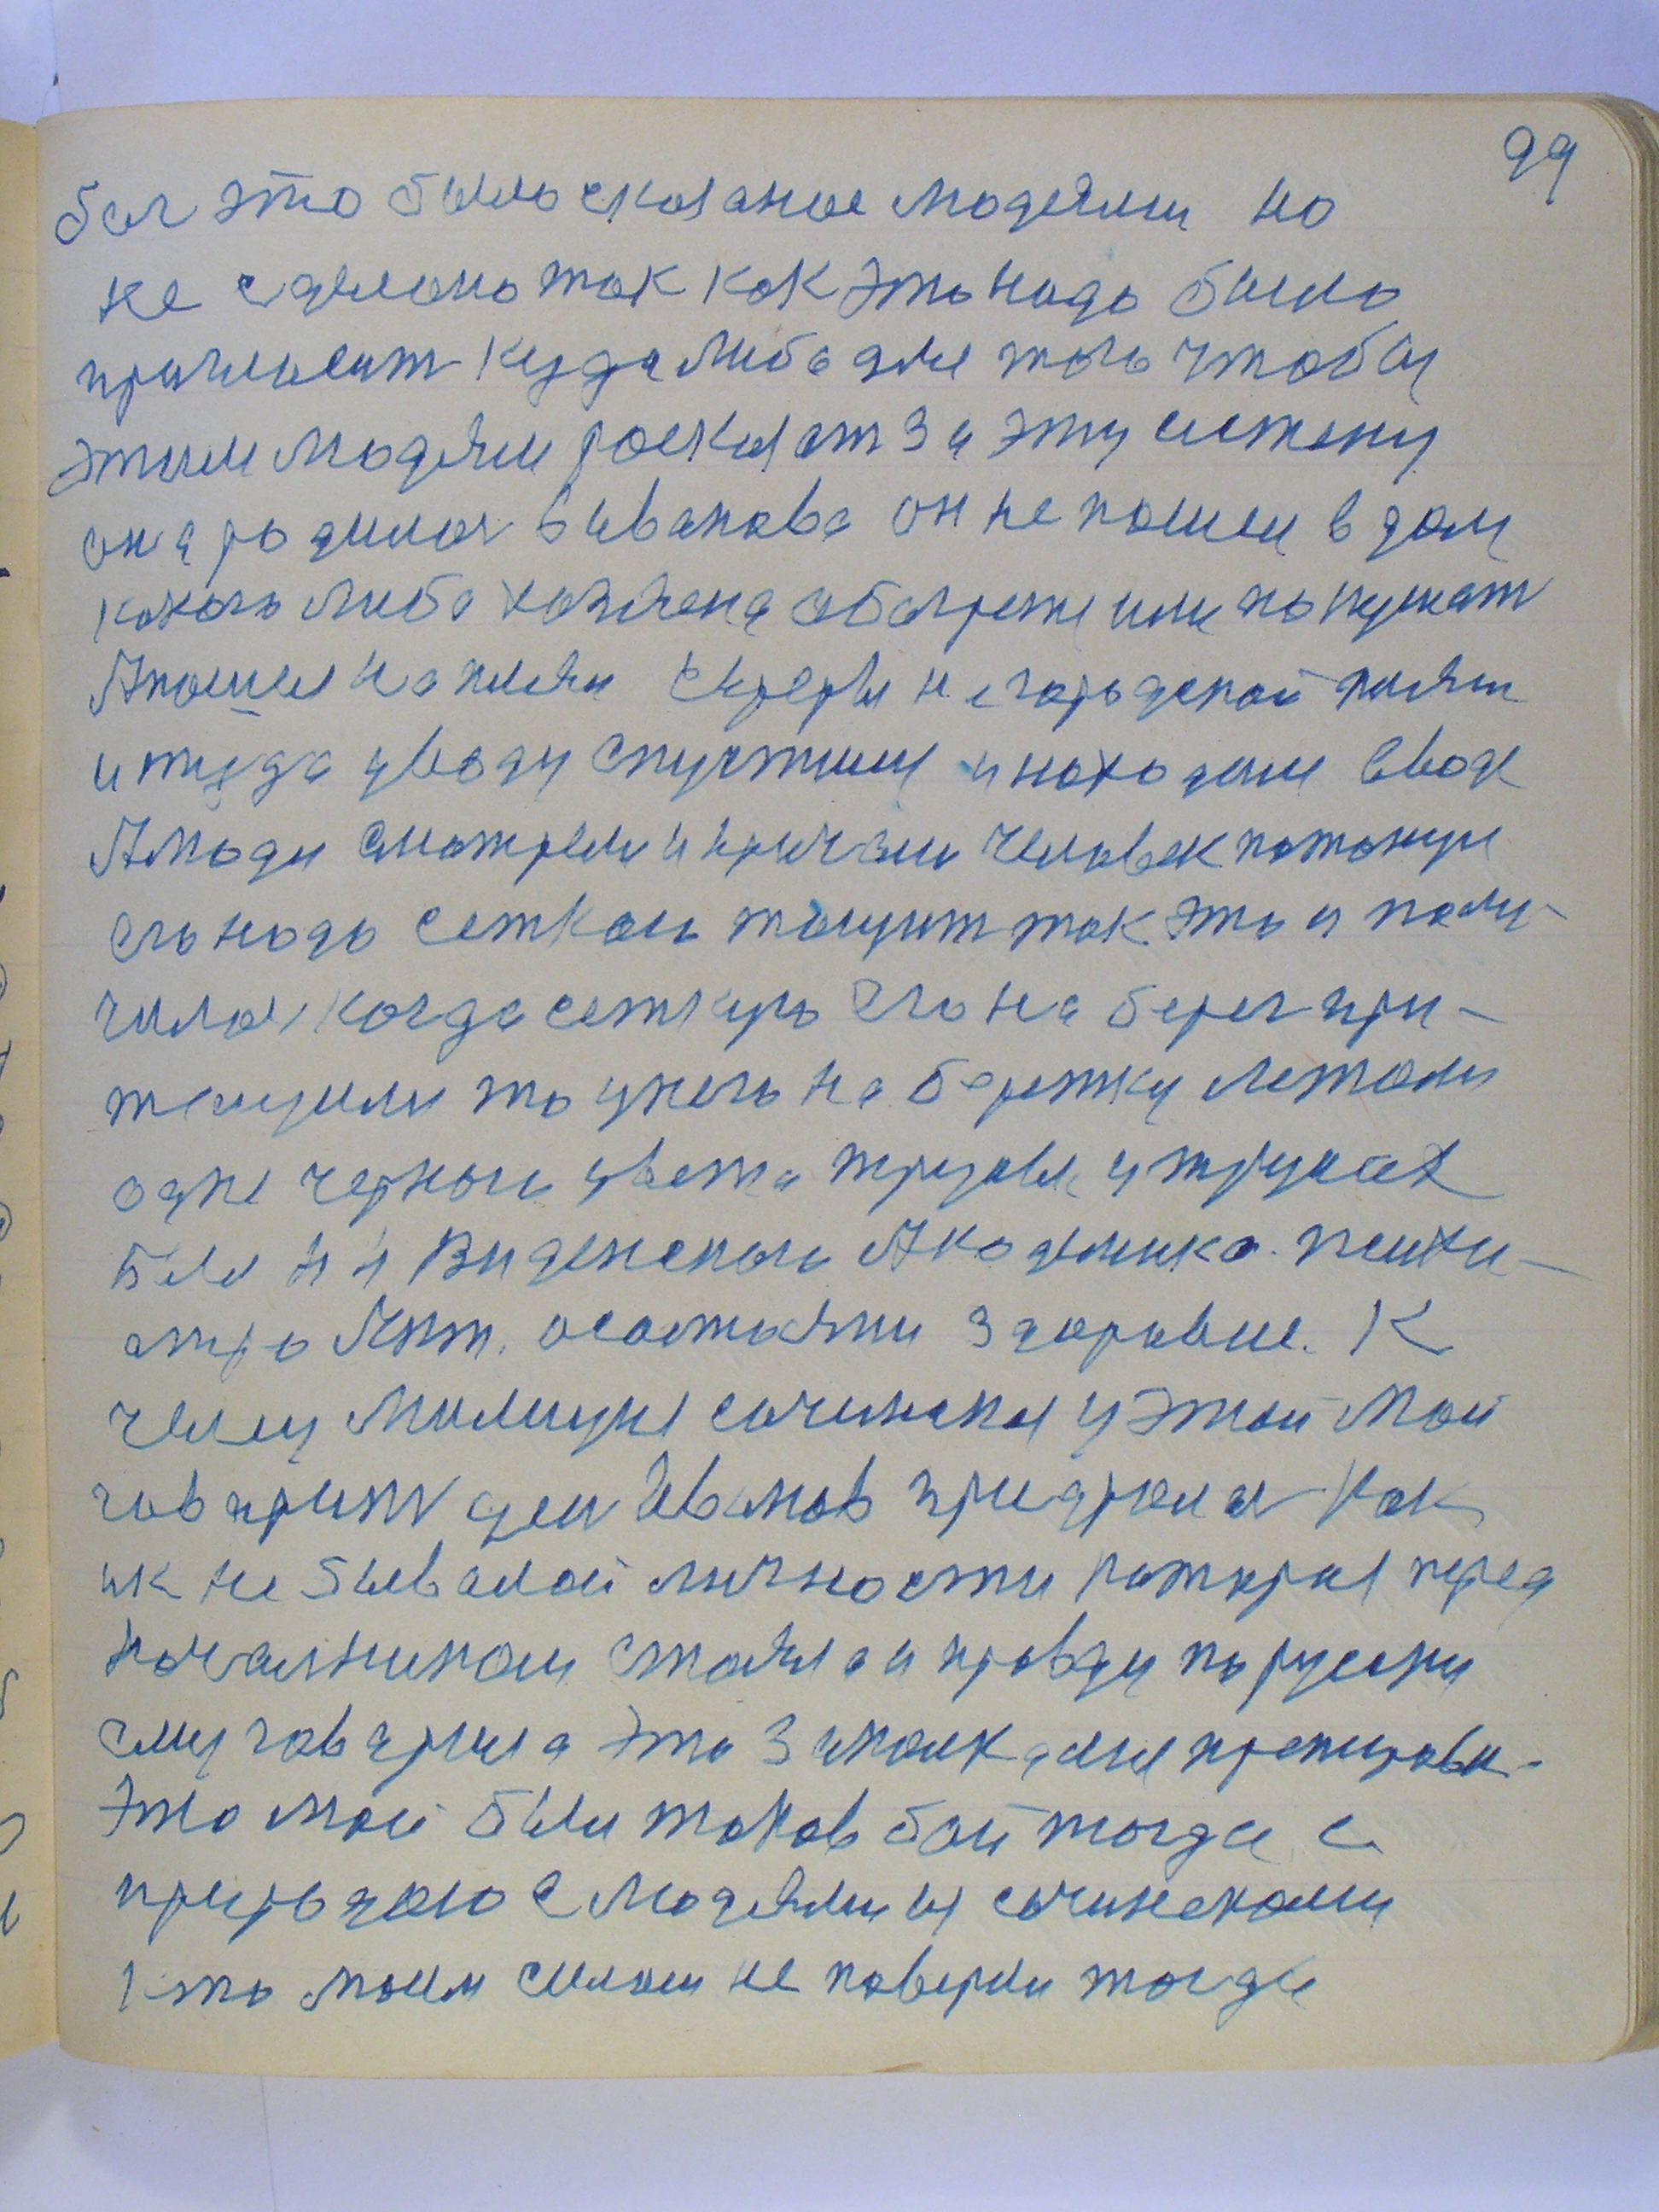 99
бог это было сказаное людями но
не сделоно так как это надо было
пригласит кудалибо для того чтобы
этим людям росказат за эту систему
она родилас Ѵ Иванова он не пошел в дом
какого либо хозяена обогрется или покушат
А пошел на пляж не городской пляж
и туда у воду спустился и находился вводе
А люди смотрели и кричали человек потонул
его надо сеткою тащит так это и полу-
чилос когда сеткую его на берег при-
тащили то унего на бережку лежали
одне черного цвета трусы у трусах
был и Виденского Академика психи-
атра Инт. осостояни здоровие. К
чему милиция сочинская у этой мой
говорит деи Иванов придралас как
ик не бывалой личности которая перед
начальником стояла и правду по руски
ему говорила это Закалка дния тренировки.
Это мой был таков бой тогда с
природаю с людями из сочинскоми
кто моим силам не поверил тогда